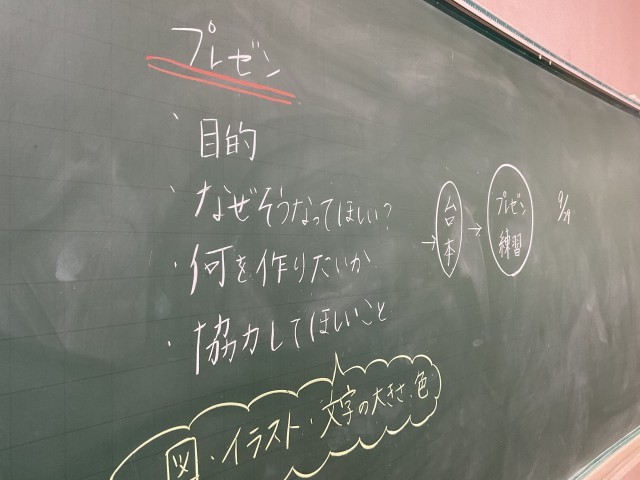 プレゼン
・目的
・なぜそうなってほしい?
・何を作りたいか
・協力してほしいこと
図・イラスト・文字の大きさ、色
→台本→プレゼン練習
9/29